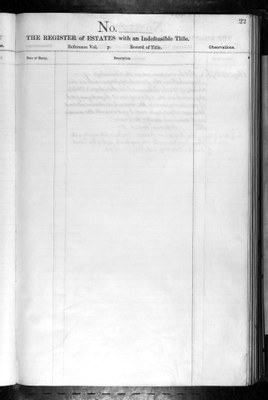 22
No.
THE REGISTER of ESTATES with an Indefeasible Title.
Reference Vol. p. Record of Title. Observations.
Date of Entry. Description.